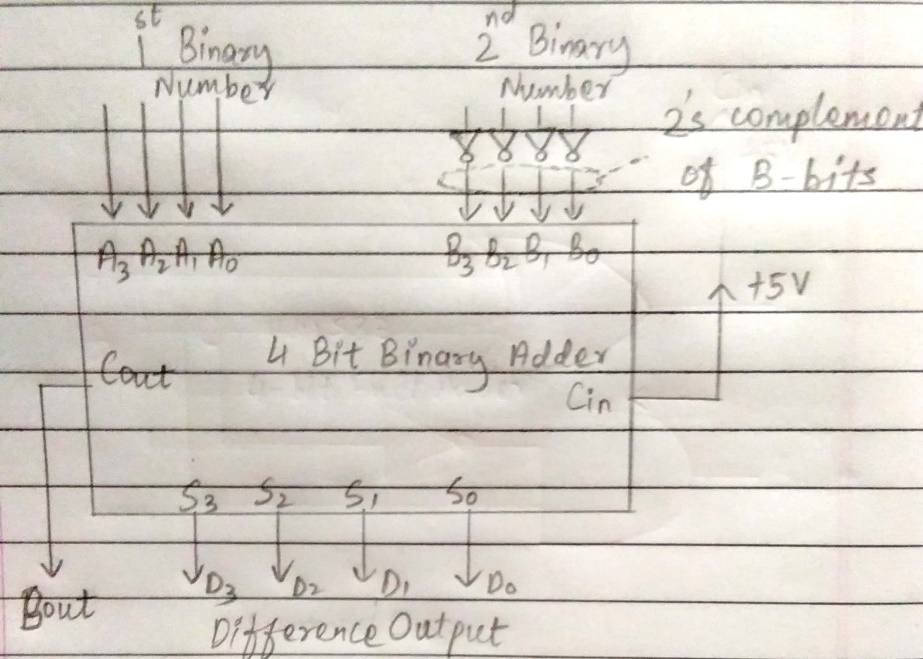 1st Binary Number
2nd Binary Number
2's complement of B-bits
A3 A2 A1 A0
B3 B2 B1 B0
+5V
4 Bit Binary Adder
Cout
Cin
S3 S2 S1 S0
D3 D2 D1 D0
Bout
Difference Output